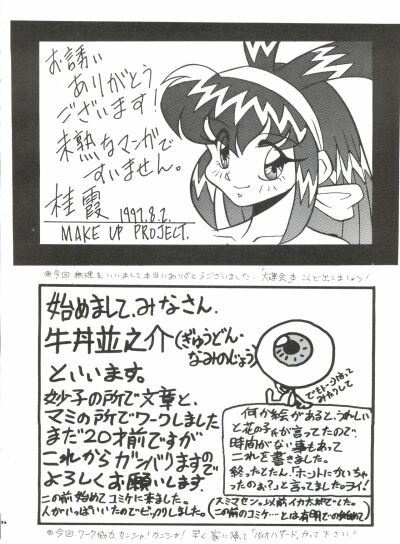 お誘い
ありがとう
ございます!
未熟なマンガで
すいません。
桂 霞
1997.8.2.
MAKE UP PROJECT.
※今回無理をいいまして本当にありがとうございました。
始めまして、みなさん。
牛丼並之介(ぎゅうどん・
なみのじょう)
といいます。
妙子の所で文章と、
マミの所でワークしました
まだ20才前ですが
これからガンバりますので
よろしくお願いします
この前始めてコミケに来ました。
人がいっぱいいたのでビックリしました。
でもトーン貼って
みたりして
何か絵があると、うれしい
と花の子さんが言ってたので
時間がない事もあって
これを書きました。
終ったとたん「ホントにかいちゃ
ったのぉ?」と言ってました。ヲイ!
(スミマセン。以前イカ太郎でした。
(この前のコミケ…とは有明での始めて)
※今回ワーク協力、カンシャ!カンシャ! 早く家に帰って「バイオハザード」やって下さい!